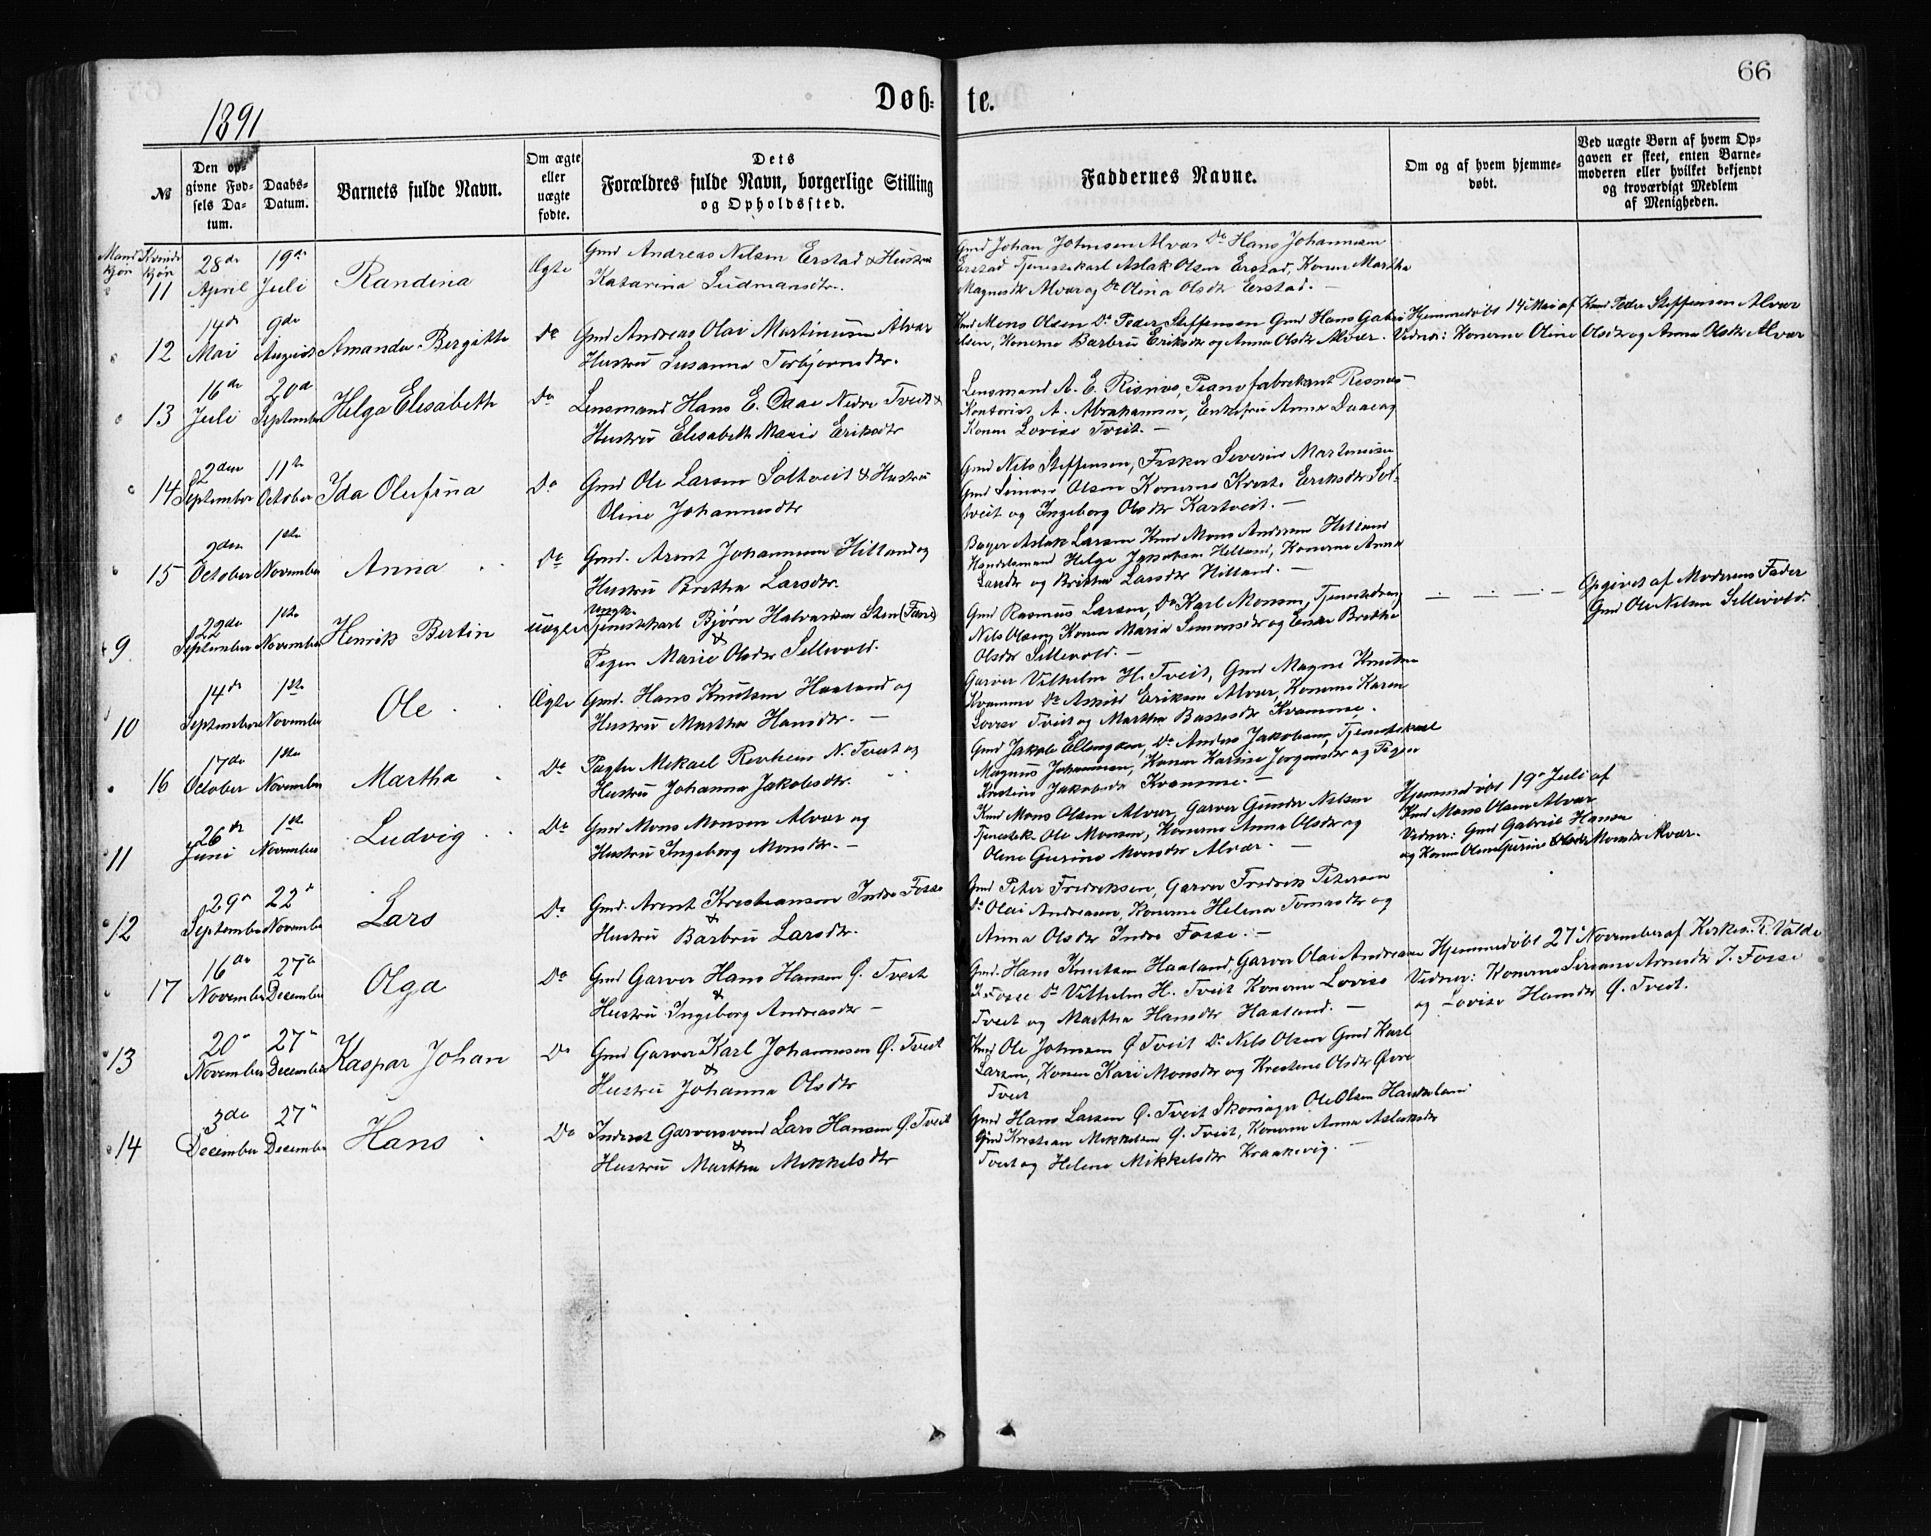 66
Døb= te.
1891
№
Den op-
givne Fød-
sels Da-
tum.
Daabs-
Datum.
Barnets fulde Navn.
Om ægte
eller
uægte
fødte.
Dets
Forældres fulde Navn, borgerlige Stilling
og Opholdssted.
Faddernes Navne.
Om og af hvem hjemme-
døbt.
Ved uægte Børn af hvem Op-
gaven er skeet, enten Barne-
moderen eller hvilket bekjendt
og troværdigt Medlem
af Menigheden.
Mand Kvinde
kjøn kjøn
11 28de April 19de Juli Randina Ægte
Gmd Andreas Nilsen Erstad & Hustru
Katarina Ludmansdtr.
Gmd Johan Johnsen Alvær Do Hans Johannesen
Erstad Tjenestekarl Aslak Olsen Erstad, Konen Martha
Magnesdtr Alvær og Do Olina Olsdtr Erstad. —
12 14de Mai 9de August Amanda Bergitte Do
Gmd Andreas Olai Martinusen Alvær
Hustru Susanna Torbjørnsdtr.
Kmd Mons Olsen Do Peder Steffensen Gmd Hans Gabri
elsen, Konerne Barbru Eriksdtr og Anna Olsdtr Alvær.
Hjemmedøbt 14 Mai af Kmd Peder Steffensen Alvær
Vidner: Konerne Oline Olsdtr og Anna Olsdtr Alvær
13 16de Juli 20de September Helga Elisabeth Do
Lensmand Hans E. Daae Nedre Tveit &
Hustru Elisabeth Marie Eriksdtr
Lensmand A. E. Risnes, Pianofabrikant Risnes
Kontorist A. Abrahamsen, Enkefru Anna Daae og
Konen Lovise Tveit. —
14 2den September 11te October Ida Olufina Do
Gmd Ole Larsen Soltveit & Hustru
Oline Johannesdtr
Gmd Nils Steffensen, Fisker Severin Martinusen
Gmd Simon Olsen Konerne Kirsti Eriksdtr Sol-
tveit og Ingeborg Olsdtr Kartveit. —
15 2den October 1ste November Anna Do
Gmd. Arnt Johannesen Hilland og
Hustru Brethe Larsdtr.
Bager Aslak Larsen Kmd Mons Andersen Hilland
Handelsmand Helge Jakobsen Hilland, Konerne Anna
Larsdtr og Britha Larsdtr Hilland. —
9 22de September 1ste November Henrik Bertin uægte
Ungk.
Tjenestekarl Bjørn Halvardsen Sten (Fane)
&
Pigen Marie Olsdtr Sellevold.
Gmd Rasmus Larsen, Do Karl Monsen, Tjenestedreng
Nils Olsen, Konen Maria Simonsdtr og Enke Brethe
Olsdtr Sellevold. —
Opgivet af Moderens Fader
Gmd Ole Nilsen Sellevold.
10 14de September 1ste November Ole Ægte
Gmd. Hans Knutsen Haaland og
Hustru Martha Hansdtr. —
Garver Vilhelm H. Tveit, Gmd Magne Knutsen
Kvamme Do Eriksen Alvær, Konerne Karen
Lovise Tveit og Martha Kvamme.
16 17de October 1ste November Martha Do
Mekael Revheim N. Tveit og
Hustru Johanna Jakobsdtr.
Gmd Jakob Ellingsen, Do Anders Jakobsen, Tjenestekarl
Magnus Johannesen, Konen Karine Jørgensdtr og Pigen
Kristine Jakobsdtr Kvamme. —
11 26de Juni 1ste November Ludvig Do
Gmd Mons Monsen Alvær og
Hustru Ingeborg Monsdtr. —
Kmd Mons Olsen Alvær, Garver Gunder Nilsen
Tjenestek. Ole Monsen, Konerne Anna Olsdtr og
Oline Gurine Monsdtr Alvær. —
Hjemmedøbt 19de Juli af
Kmd Mons Olsen Alvær
Vidner: Gmd Gabriel Hansen
og Konen Oline Gurine Monsdtr Alvær.
12 29de September 22de November Lars Do
Gmd. Arent Kristiansen Indre Fosse
&
Hustru Barbru Larsdtr.
Gmd Peter Fredriksen, Garver Fredrik Petersen
Do Olai Andreasen, Konerne Helena Tomasdtr og
Anna Olsdtr Indre Fosse. —
17 16de November 27de December Olga Do
Gmd Garver Hans Hansen Ø. Tveit
&
Hustru Ingeborg Andreasdtr —
Gmd. Hans Knutsen Haaland, Garver Olai Andreasen
I. Fosse Do Vilhelm H. Tveit Konerne Lovise
Tveit og Martha Hansdtr Haaland. —
Hjemmedøbt 27de November af Kirkes. R. Valde
Vidner: Konerne Siriane Arnesdtr I. Fosse
og Lovise Hansdtr Ø. Tveit.
13 20de November 27de December Kaspar Johan Do
Gmd Garver Karl Johannesen Ø. Tveit
&
Hustru Johanna Olsdtr
Kmd Ole Johnsen Ø Tveit Do Nils Olsen Gmd Karl
Larsen, Konen Kari Monsdtr og Kristine Olsdtr Øvre
Tveit
14 3de December 27de December Hans Do
Inderst Garversvend Lars Hansen Ø. Tveit
&
Hustru Martha Mikkelsdtr
Gmd Hans Larsen Ø. Tveit Skomager Ole Olsen
Gmd Kristian Mikkelsen Ø. Tveit, Konerne Anna Aslaksdtr
Tveit og Helene Mikkelsdtr Kraakevig. —